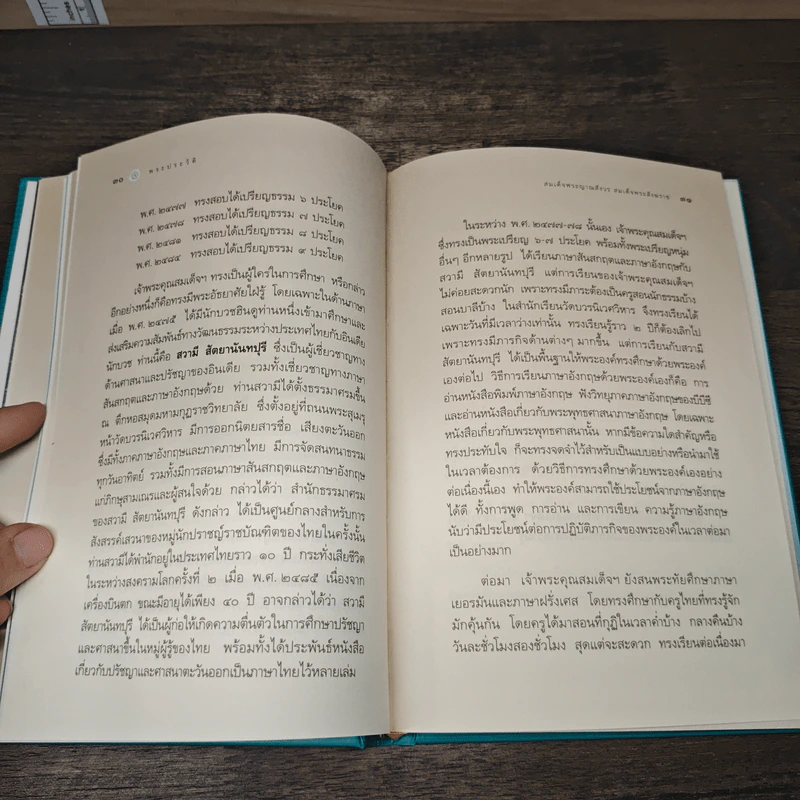 ๓๐ พระประวัติ
พ.ศ. ๒๔๗๗ ทรงสอบได้เปรียญธรรม ๖ ประโยค
พ.ศ. ๒๔๗๘ ทรงสอบได้เปรียญธรรม ๗ ประโยค
พ.ศ. ๒๔๘๑ ทรงสอบได้เปรียญธรรม ๘ ประโยค
พ.ศ. ๒๔๘๔ ทรงสอบได้เปรียญธรรม ๙ ประโยค
เจ้าพระคุณสมเด็จฯ ทรงเป็นผู้ใคร่ในการศึกษา หรือกล่าว
อีกอย่างหนึ่งก็คือทรงมีพระอัธยาศัยใฝ่รู้ โดยเฉพาะในด้านภาษา
เมื่อ พ.ศ. ๒๔๗๕ ได้มีนักบวชฮินดูท่านหนึ่งเข้ามาศึกษาและ
ส่งเสริมความสัมพันธ์ทางวัฒนธรรมระหว่างประเทศไทยกับอินเดีย
นักบวช ท่านนี้คือ สวามี สัตยานันทปุรี ซึ่งเป็นผู้เชี่ยวชาญทาง
ด้านศาสนาและปรัชญาของอินเดีย รวมทั้งเชี่ยวชาญทางภาษา
สันสกฤตและภาษาอังกฤษด้วย ท่านสวามีได้ตั้งธรรมาศรมขึ้น
ณ ตึกหอสมุดมหามกุฏราชวิทยาลัย ซึ่งตั้งอยู่ที่ถนนพระสุเมรุ
หน้าวัดบวรนิเวศวิหาร มีการออกนิตยสารชื่อ เสียงตะวันออก
ซึ่งมีทั้งภาคภาษาอังกฤษและภาคภาษาไทย มีการจัดสนทนาธรรม
ทุกวันอาทิตย์ รวมทั้งมีการสอนภาษาสันสกฤตและภาษาอังกฤษ
แก่ภิกษุสามเณรและผู้สนใจด้วย กล่าวได้ว่า สำนักธรรมาศรม
ของสวามี สัตยานันทปุรี ดังกล่าว ได้เป็นศูนย์กลางสำหรับการ
สังสรรค์เสวนาของหมู่นักปราชญ์ราชบัณฑิตของไทยในครั้งนั้น
ท่านสวามีได้พำนักอยู่ในประเทศไทยราว ๑๐ ปี กระทั่งเสียชีวิต
ในระหว่างสงครามโลกครั้งที่ ๒ เมื่อ พ.ศ. ๒๔๘๕ เนื่องจาก
เครื่องบินตก ขณะมีอายุได้เพียง ๔๐ ปี อาจกล่าวได้ว่า สวามี
สัตยานันทปุรี ได้เป็นผู้ก่อให้เกิดความตื่นตัวในการศึกษาปรัชญา
และศาสนาขึ้นในหมู่ผู้รู้ของไทย พร้อมทั้งได้ประพันธ์หนังสือ
เกี่ยวกับปรัชญาและศาสนาตะวันออกเป็นภาษาไทยไว้หลายเล่ม
สมเด็จพระญาณสังวร สมเด็จพระสังฆราช ๓๑
ในระหว่าง พ.ศ. ๒๔๗๗-๗๘ นั้นเอง เจ้าพระคุณสมเด็จฯ
ซึ่งทรงเป็นพระเปรียญ ๖-๗ ประโยค พร้อมทั้งพระเปรียญหนุ่ม
อื่นๆ อีกหลายรูป ได้เรียนภาษาสันสกฤตและภาษาอังกฤษกับ
สวามี สัตยานันทปุรี แต่การเรียนของเจ้าพระคุณสมเด็จฯ
ไม่ค่อยสะดวกนัก เพราะทรงมีภาระต้องเป็นครูสอนนักธรรมบ้าง
สอนบาลีบ้าง ในสำนักเรียนวัดบวรนิเวศวิหาร จึงทรงเรียนได้
เฉพาะวันที่มีเวลาว่างเท่านั้น ทรงเรียนรู้ราว ๒ ปีก็ต้องเลิกไป
เพราะทรงมีภารกิจด้านต่างๆ มากขึ้น แต่การเรียนกับสวามี
สัตยานันทปุรี ได้เป็นพื้นฐานให้พระองค์ทรงศึกษาด้วยพระองค์
เองต่อไป วิธีการเรียนภาษาอังกฤษด้วยพระองค์เองก็คือ การ
อ่านหนังสือพิมพ์ภาษาอังกฤษ ฟังวิทยุภาคภาษาอังกฤษของบีบีซี
และอ่านหนังสือเกี่ยวกับพระพุทธศาสนาภาษาอังกฤษ โดยเฉพาะ
หนังสือเกี่ยวกับพระพุทธศาสนานั้น หากมีข้อความใดสำคัญหรือ
ทรงประทับใจ ก็จะทรงจดจำไว้สำหรับเป็นแบบอย่างหรือนำมาใช้
ในเวลาต้องการ ด้วยวิธีการทรงศึกษาด้วยพระองค์เองอย่าง
ต่อเนื่องนี้เอง ทำให้พระองค์สามารถใช้ประโยชน์จากภาษาอังกฤษ
ได้ดี ทั้งการพูด การอ่าน และการเขียน ความรู้ภาษาอังกฤษ
นับว่ามีประโยชน์ต่อการปฏิบัติภารกิจของพระองค์ในเวลาต่อมา
เป็นอย่างมาก
ต่อมา เจ้าพระคุณสมเด็จฯ ยังสนพระทัยศึกษาภาษา
เยอรมันและภาษาฝรั่งเศส โดยทรงศึกษากับครูไทยที่ทรงรู้จัก
มักคุ้นกัน โดยครูได้มาสอนที่กุฏิในเวลาค่ำบ้าง กลางคืนบ้าง
วันละชั่วโมงสองชั่วโมง สุดแต่จะสะดวก ทรงเรียนต่อเนื่องมา